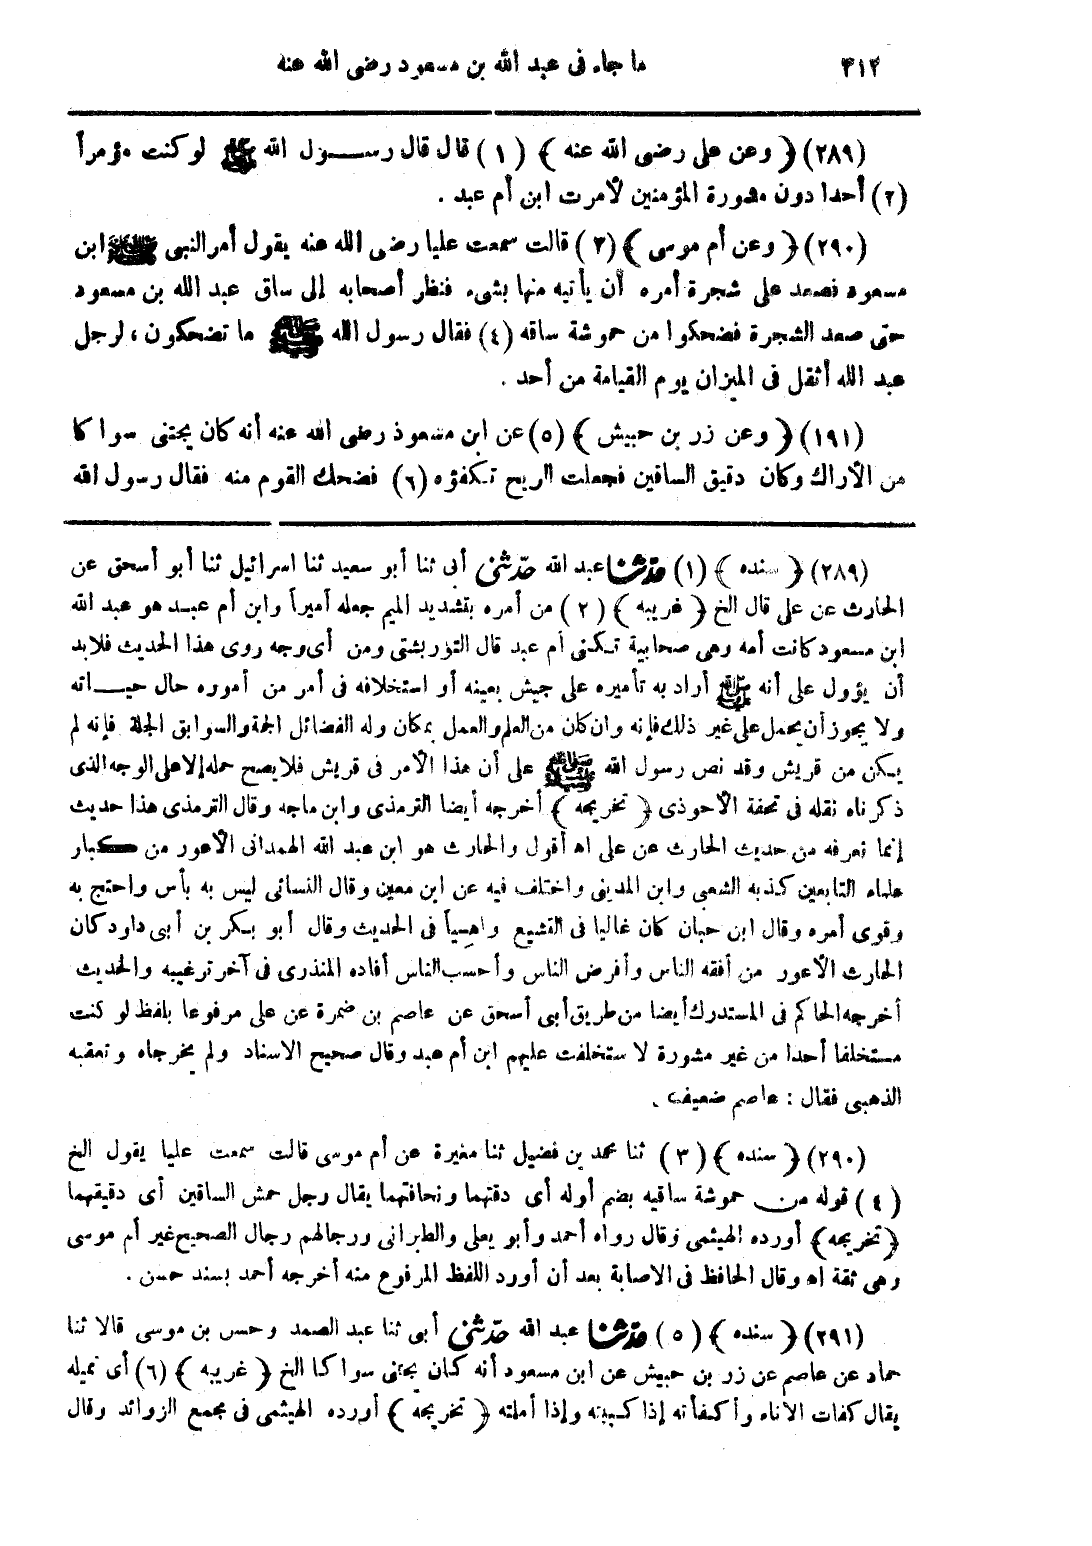 ٣١٢ ما جاء فى عبد الله بن مسعود رضى الله عنه
(٢٨٩) ﴿ وعن على رضى الله عنه ﴾ (١) قال قال رسول الله ﷺ لو كنت مؤمرأ
(٢) أحدا دون مشورة المؤمنين لأمرت ابن أم عبد .
(٢٩٠) ﴿ وعن أم موسى ﴾ (٣) قالت سمعت عليا رضى الله عنه يقول أمر النبى ﷺ ابن
مسعود فصعد على شجرة أمره أن يأتيه منها بشىء فنظر أصحابه إلى ساق عبد الله بن مسعود
حتى صعد الشجرة فضحكوا من حموشة ساقه (٤) فقال رسول الله ﷺ ما تضحكون ، لرجل
عبد الله أثقل فى الميزان يوم القيامة من أحد .
(١٩١) ﴿ وعن زر بن حبيش ﴾ (٥) عن ابن مسعوذ رضى الله عنه أنه كان يجتنى سواكا
من الأراك وكان دقيق الساقين فجعلت الريح تكفؤه (٦) فضحك القوم منه فقال رسول الله
(٢٨٩) ﴿ سنده ﴾ (١) حدثنا عبد الله حدثنى أبى ثنا أبو سعيد ثنا اسرائيل ثنا أبو أسحق عن
الحارث عن على قال الخ ﴿ غريبه ﴾ (٢) من أمره بتشديد الميم جعله أميرأ وابن أم عبد هو عبد الله
ابن مسعود كانت أمه وهى صحابية تكنى أم عبد قال التوربشتى ومن أى وجه روى هذا الحديث فلابد
أن يؤول على أنه ﷺ أراد به تأميره على جيش بعينه أو استخلافه فى أمر من أموره حال حياته
ولا يجوز أن يحمل على غير ذلك فإنه وان كان من العلم والعمل بمكان وله الفضائل الجمة والسوابق الجلة فإنه لم
يكن من قريش وقد نص رسول الله ﷺ على أن هذا الأمر فى قريش فلا يصح حمله إلا على الوجه الذى
ذكرناه نقله فى تحفة الأحوذى ﴿ تخريجه ﴾ أخرجه أيضا الترمذى وابن ماجه وقال الترمذى هذا حديث
إنما نعرفه من حديث الحارث عن على اه أقول والحارث هو ابن عبد الله الهمدانى الأعور من كبار
علماء التابعين كذبه الشعبى وابن المدينى واختلف فيه عن ابن معين وقال النسائى ليس به بأس واحتج به
وقوى أمره وقال ابن حبان كان غاليا فى التشيع واهيأ فى الحديث وقال أبو بكر بن أبى داود كان
الحارث الأعور من أفقه الناس وأفرض الناس وأحسب الناس أفاده المنذرى فى آخر ترغيبه والحديث
أخرجه الحاكم فى المستدرك أيضا من طريق أبى أسحق عن عاصم بن ضمرة عن على مرفوعا بلفظ لو كنت
مستخلفا أحدا من غير مشورة لاستخلفت عليهم ابن أم عبد وقال صحيح الاسناد ولم يخرجاه وتعقبه
الذهبى فقال : عاصم ضعيف .
(٢٩٠) ﴿ سنده ﴾ (٣) ثنا محمد بن فضيل ثنا مغيرة عن أم موسى قالت سمعت عليا يقول الخ
(٤) قوله من حموشة ساقيه بضم أوله أى دقتهما ونحافتهما يقال رجل حمش الساقين أى دقيقهما
﴿ تخريجه ﴾ أورده الهيثمى وقال رواه أحمد وأبو يعلى والطبرانى ورجالهم رجال الصحيح غير أم موسى
وهى ثقة اه وقال الحافظ فى الاصابة بعد أن أورد اللفظ المرفوع منه أخرجه أحمد بسند حسن .
(٢٩١) ﴿ سنده ﴾ (٥) حدثنا عبد الله حدثنى أبى ثنا عبد الصمد وحسن بن موسى قالا ثنا
حماد عن عاصم عن زر بن حبيش عن ابن مسعود أنه كان يجتنى سواكا الخ ﴿ غريبه ﴾ (٦) أى تميله
يقال كفات الأناء وأكفأته إذا كببته وإذا أملته ﴿ تخريجه ﴾ أورده الهيثمى فى مجمع الزوائد وقال